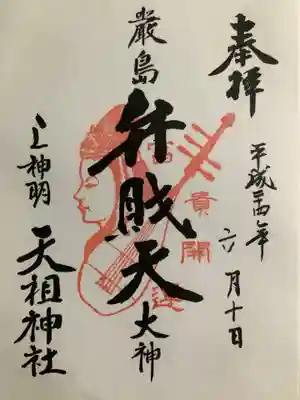 奉拝
平成
年
六月十日
嚴島
弁財天
大神
貴開
上神明
天祖神社